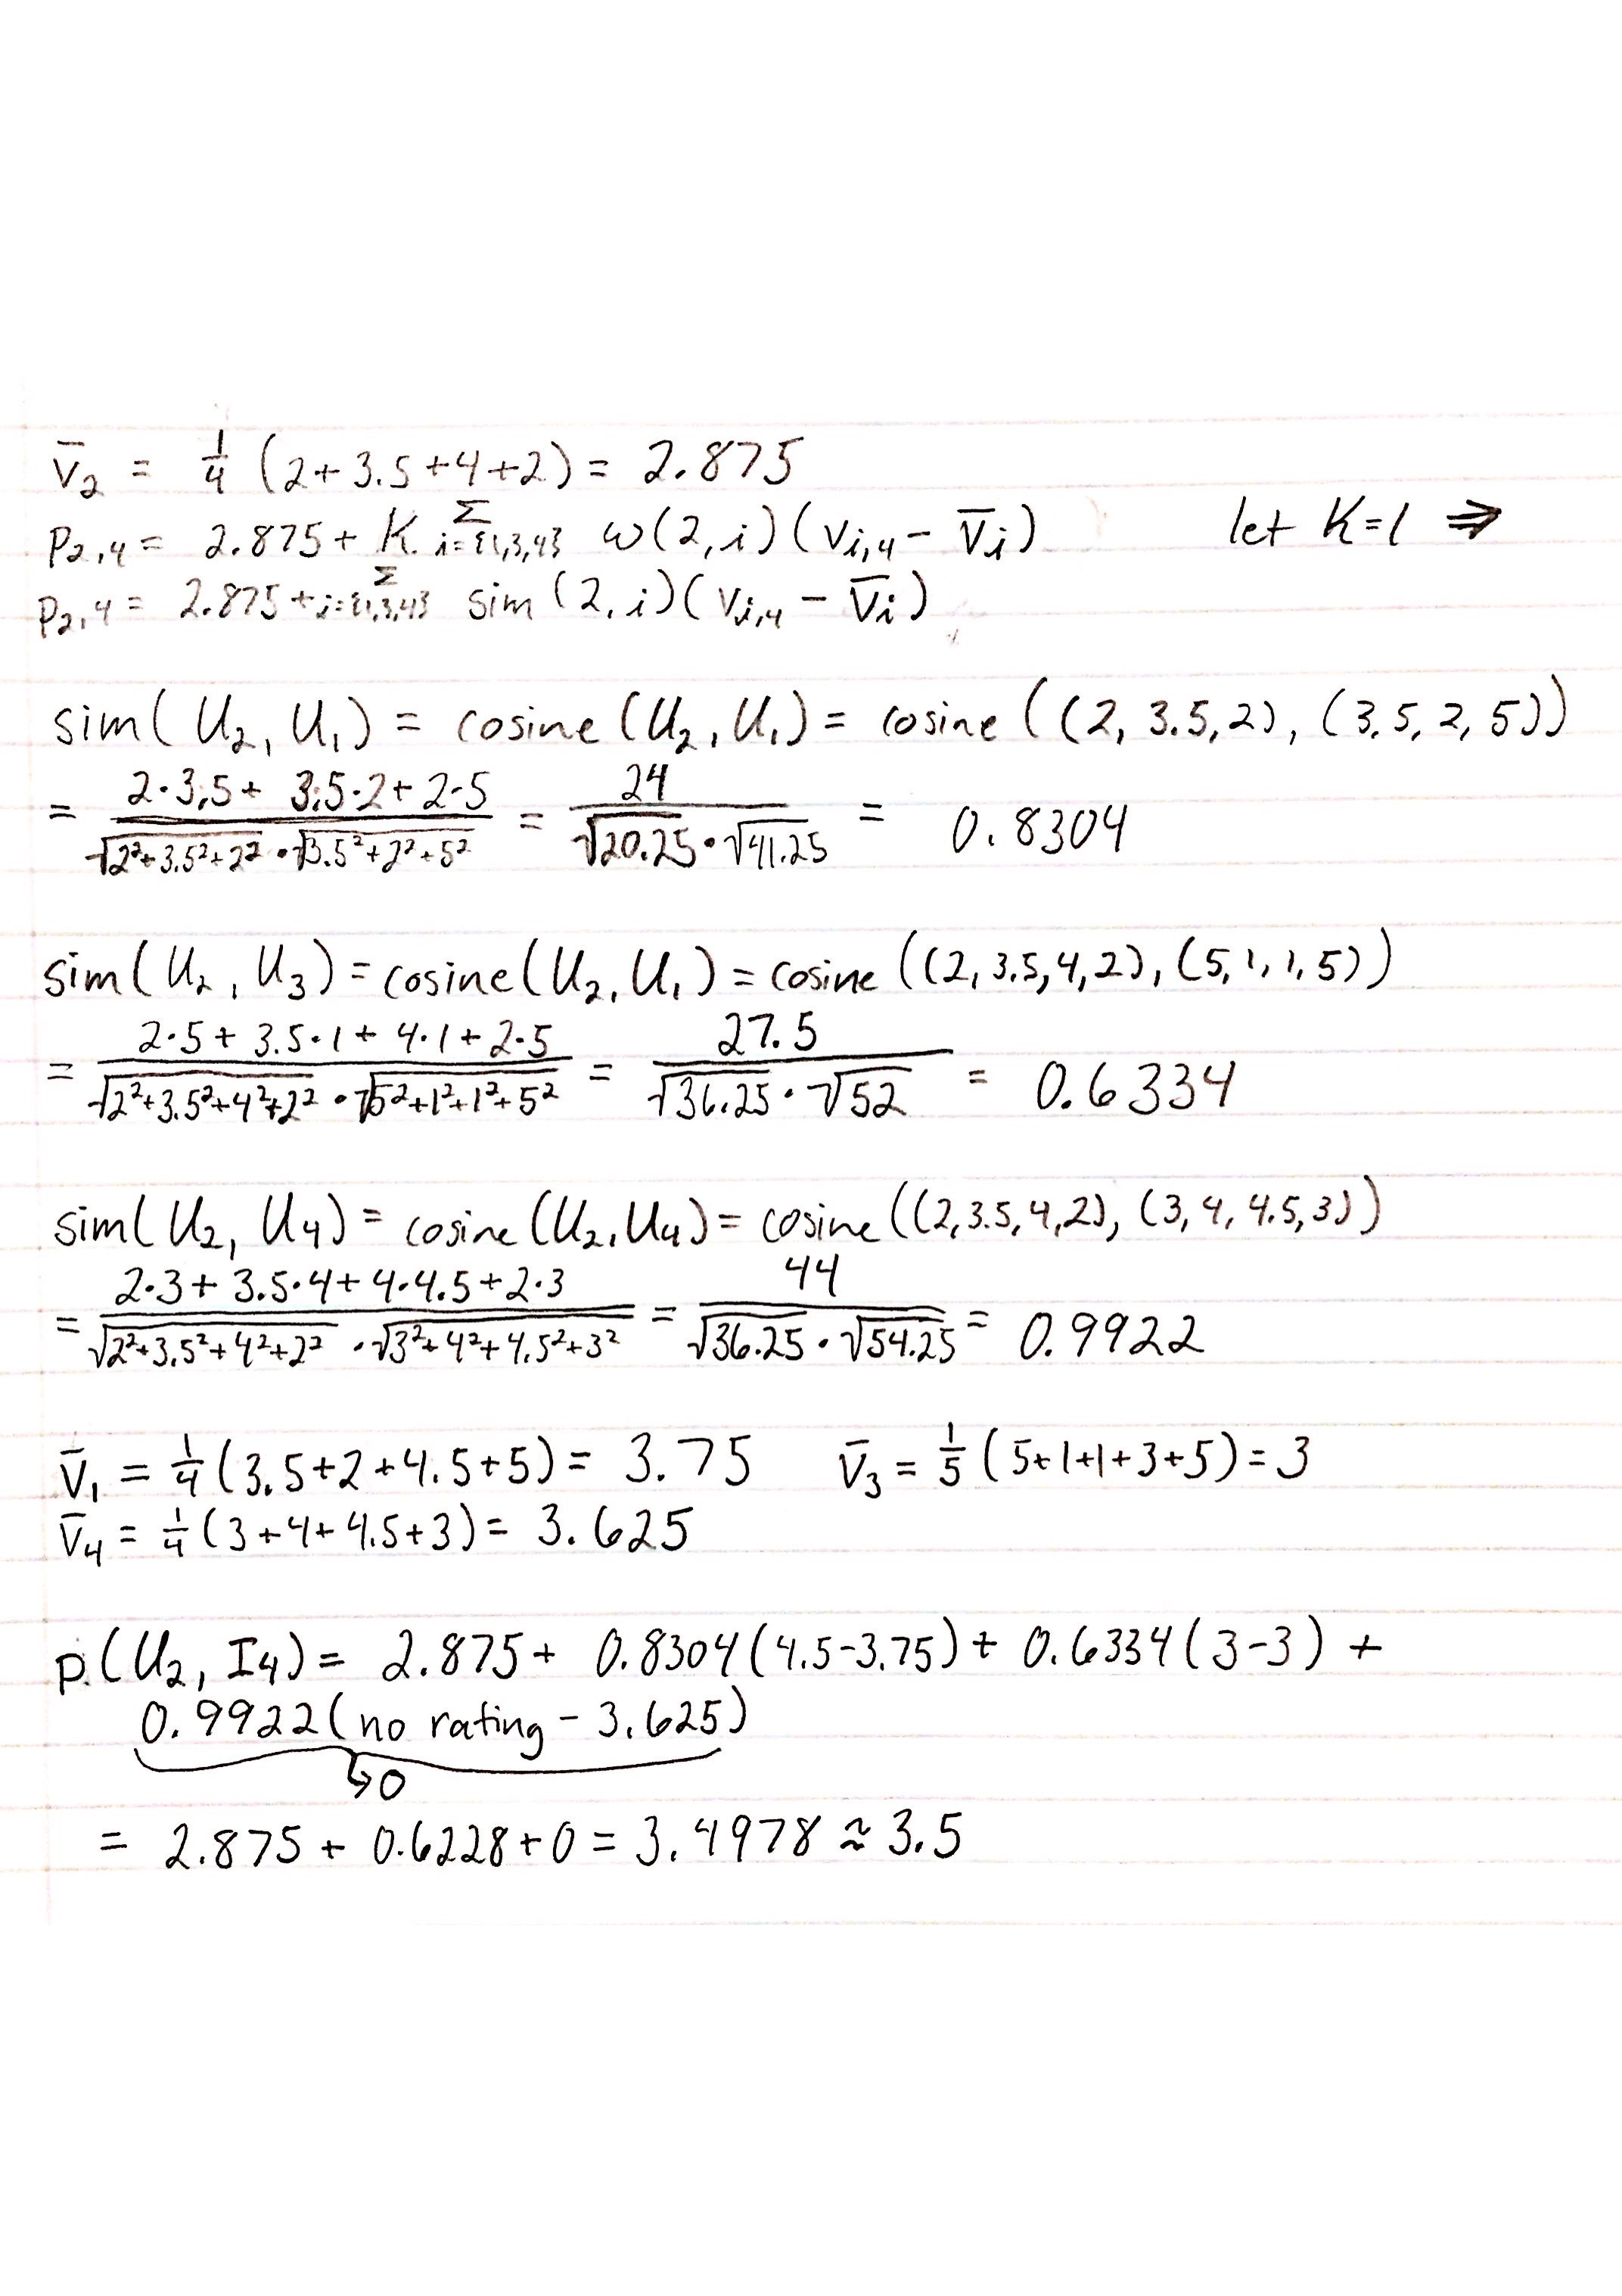 v̄₂ = 1/4 (2+3.5+4+2) = 2.875
p₂,₄ = 2.875 + K Σ i={1,3,4} w(2,i)(vi,₄ − v̄i) let K=1 ⇒
p₂,₄ = 2.875 + Σ i={1,3,4} sim(2,i)(vi,₄ − v̄i)
sim(U₂, U₁) = cosine(U₂, U₁) = cosine((2, 3.5, 2), (3.5, 2, 5))
= (2·3.5 + 3.5·2 + 2·5) / (√(2²+3.5²+2²) · √(3.5²+2²+5²)) = 24 / (√20.25 · √41.25) = 0.8304
sim(U₂, U₃) = cosine(U₂, U₁) = cosine((2, 3.5, 4, 2), (5, 1, 1, 5))
= (2·5 + 3.5·1 + 4·1 + 2·5) / (√(2²+3.5²+4²+2²) · √(5²+1²+1²+5²)) = 27.5 / (√36.25 · √52) = 0.6334
sim(U₂, U₄) = cosine(U₂, U₄) = cosine((2, 3.5, 4, 2), (3, 4, 4.5, 3))
= (2·3 + 3.5·4 + 4·4.5 + 2·3) / (√(2²+3.5²+4²+2²) · √(3²+4²+4.5²+3²)) = 44 / (√36.25 · √54.25) = 0.9922
v̄₁ = 1/4 (3.5+2+4.5+5) = 3.75 v̄₃ = 1/5 (5+1+1+3+5) = 3
v̄₄ = 1/4 (3+4+4.5+3) = 3.625
p(U₂, I₄) = 2.875 + 0.8304(4.5−3.75) + 0.6334(3−3) +
0.9922(no rating − 3.625)
↳0
= 2.875 + 0.6228 + 0 = 3.4978 ≈ 3.5